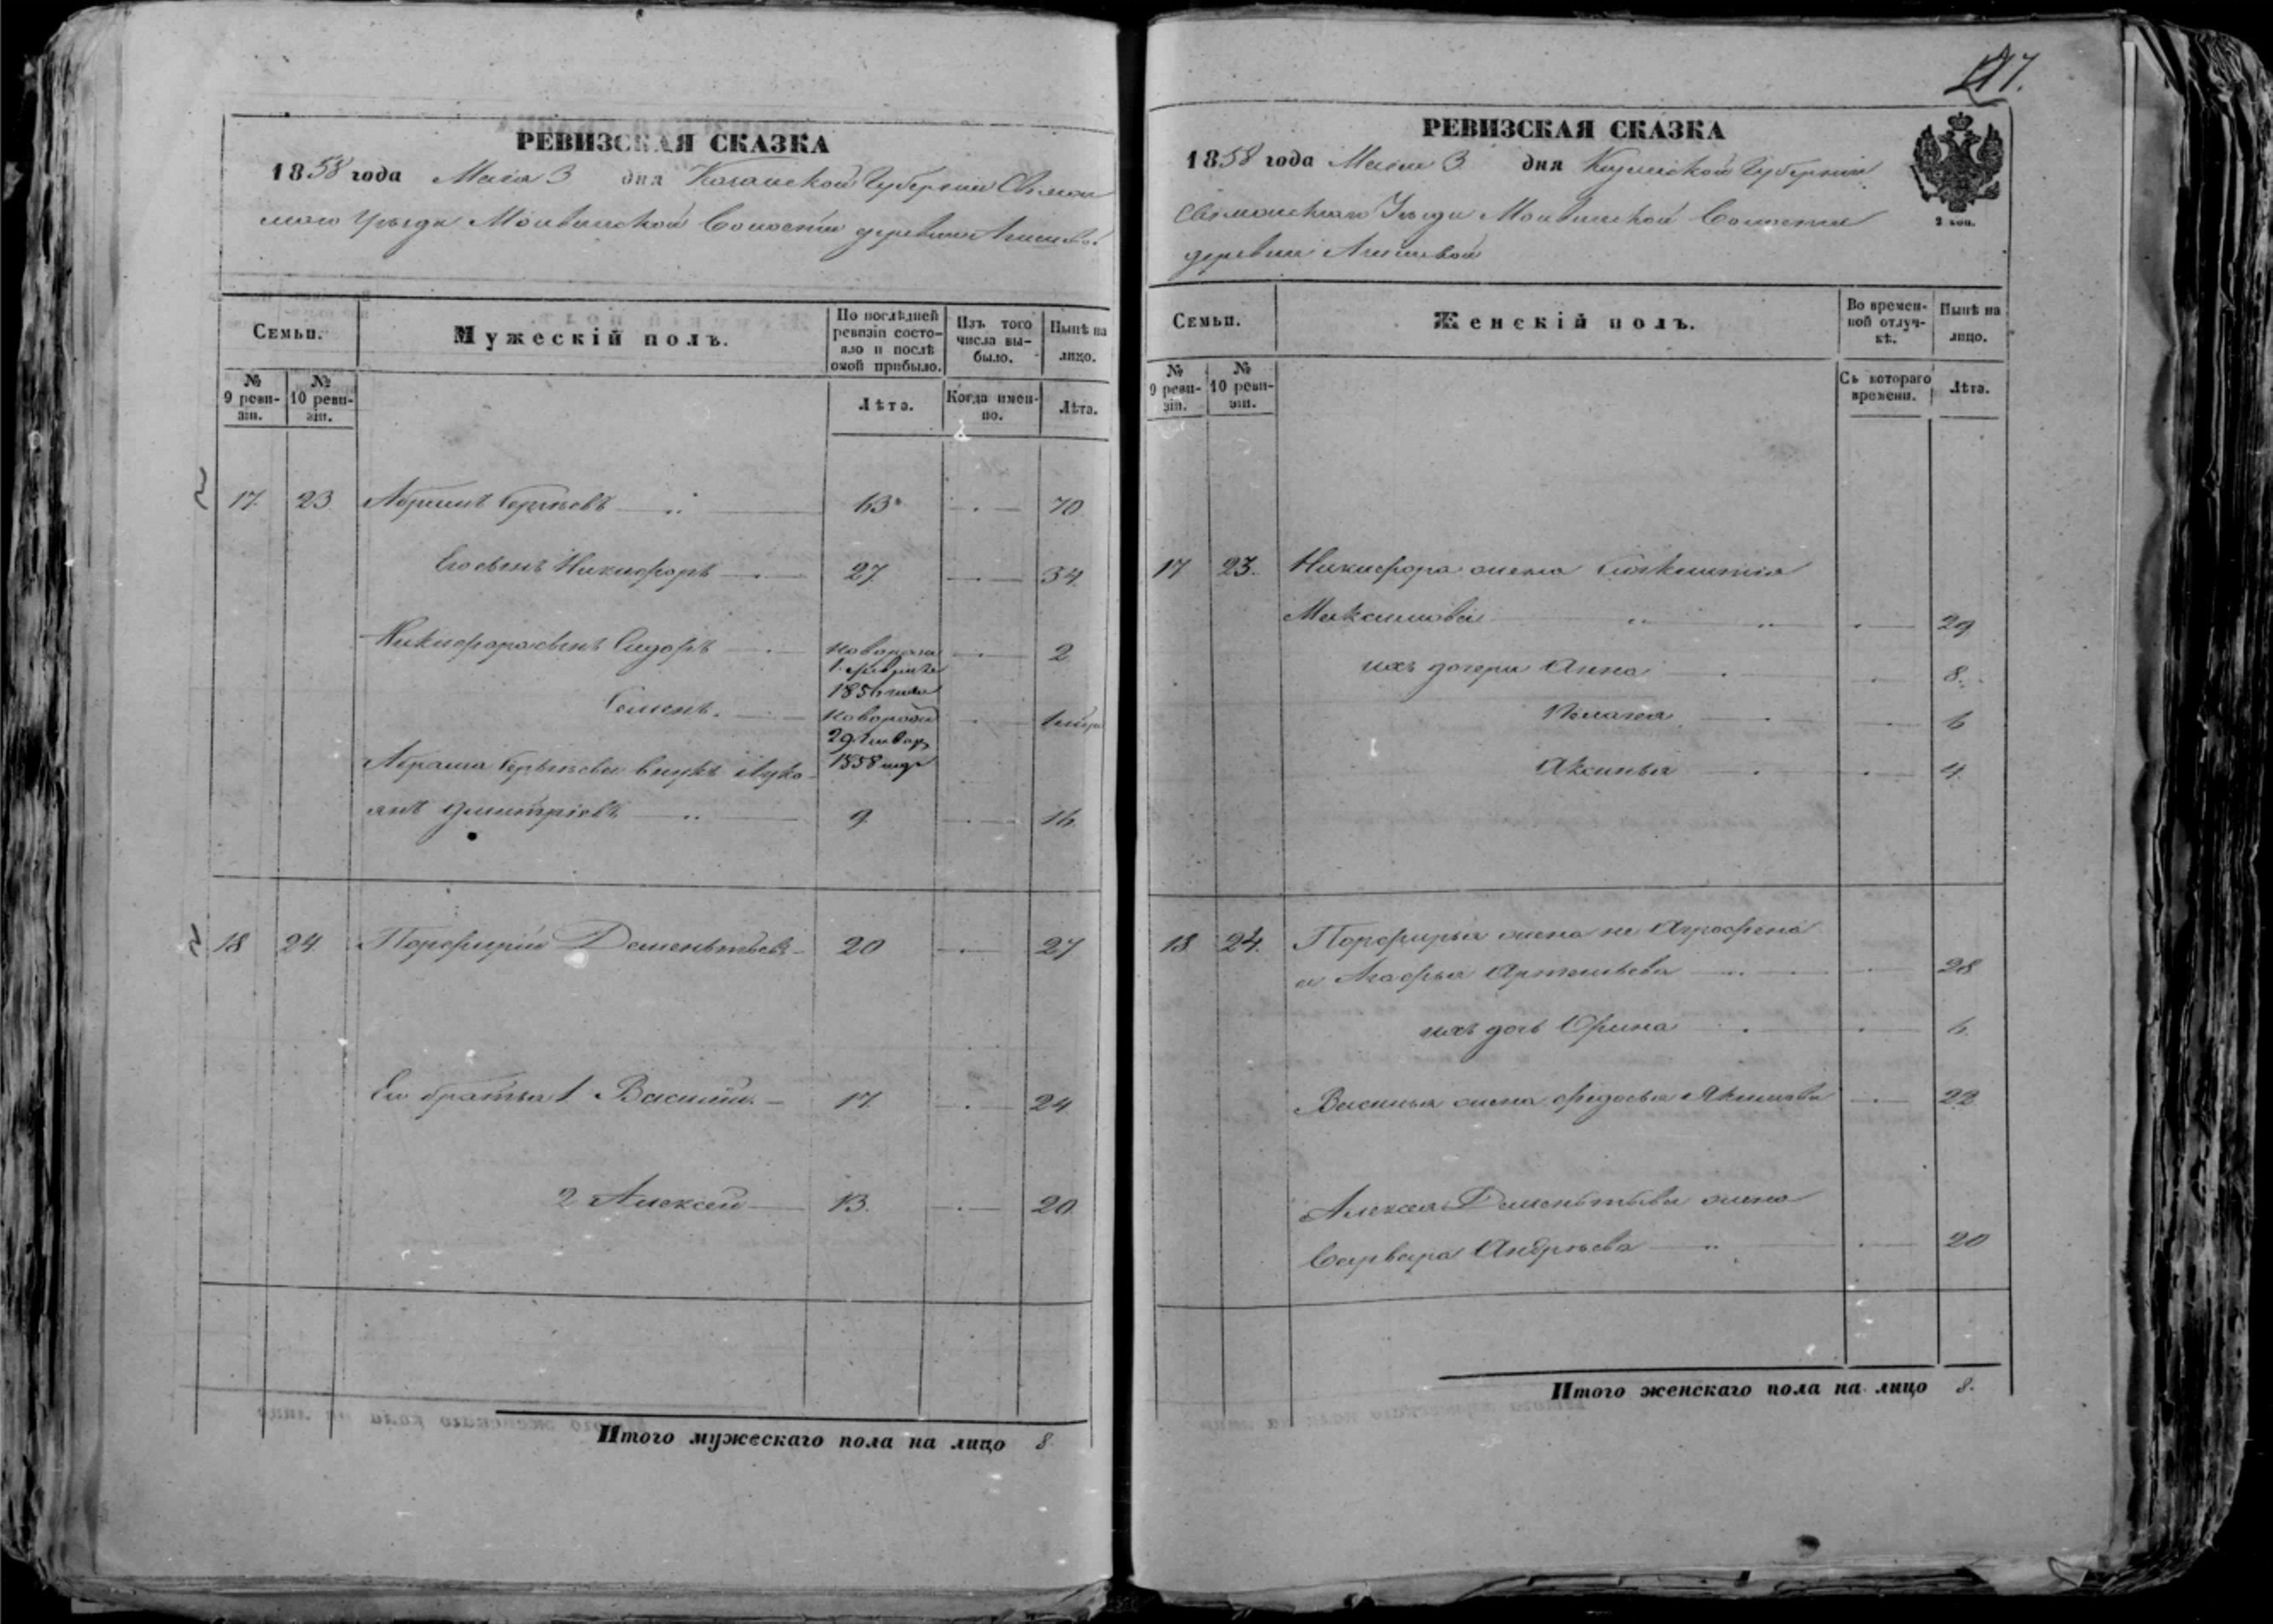 РЕВИЗСКАЯ СКАЗКА
1858 года Мая 3 дня Казанской Губернии
Уезда Волости деревни
Семьи.
Мужескій полъ.
По послѣдней ревизіи состояло и послѣ оной прибыло.
Изъ того числа выбыло.
Нынѣ на лицо.
№ 9 ревизіи.
№ 10 ревизіи.
Лѣта.
Когда именно.
Лѣта.
17. 23. 63 70
Его сынъ Никифоръ 27 34.
Никифора сынъ Сидоръ 2
1856 года
Семенъ.
29 Января
1858 года
Абрама внукъ Лукаянъ Дмитріевъ 9. 16.
18 24 Порфирий Дементьевъ 20 27
Его братья 1 Василий. 17. 24
2 Алексей 13. 20
Итого мужескаго пола на лицо 8.
217.
РЕВИЗСКАЯ СКАЗКА
1858 года Мая 3 дня Казанской Губернии
Уезда Волости
деревни
2 коп.
Семьи.
Женскій полъ.
Во временной отлучкѣ.
Нынѣ на лицо.
№ 9 ревизіи.
№ 10 ревизіи.
Съ котораго времени.
Лѣта.
17 23. Никифора жена
Максимова 29
ихъ дочери Анна 8.
6
Аксинья 4.
18 24. Порфирья жена не Аграфена
а Агафья 28
ихъ дочь Орина 6.
Василья жена Федосья Якимова 22
Алексея Дементьева жена
Варвара Андреева 20
Итого женскаго пола на лицо 8.